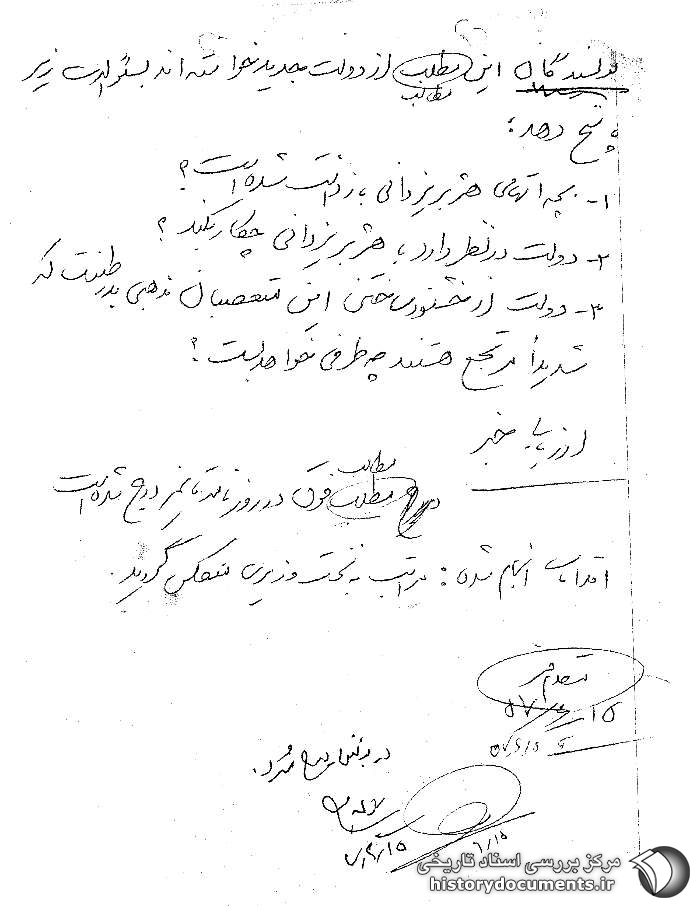 نویسندگان این مطلب از دولت جدید خواسته اند بسئوالات زیر
مطالب
پاسخ دهد:
۱- بچه اتهامی هژبر یزدانی بازداشت شده است؟
۲- دولت در نظر دارد با هژبر یزدانی چکار بکند؟
۳- دولت از خشنود ساختن این متعصبان مذهبی بدطینت که
شدیداً مرتجع هستند چه طرفی خواهد بست؟
ارزیابی خبر
مطالب
مطلب فوق در روزنامه تایمز درج شده است
اقدامات انجام شده: مراتب به نخست وزیری منعکس گردید.
۵۷/۶/۱۵
در بولتن درج گردد.
۶/۱۵
مرکز بررسی اسناد تاریخی
historydocuments.ir